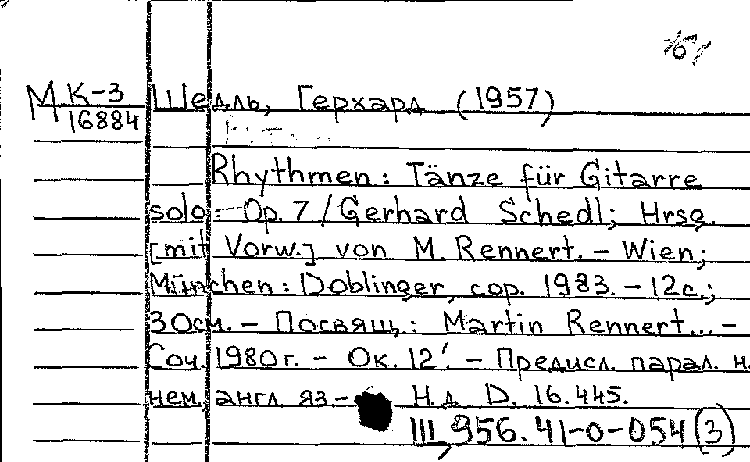 М К-3 Шедль, Герхард (1957)
16884
Rhythmen: Tänze für Gitarre
solo: Op. 7 / Gerhard Schedl; Hrsg.
[mit Vorw.] von M. Rennert. – Wien;
München: Doblinger, cop. 1983. – 12с.;
30см. – Посвящ.: Martin Rennert... –
Соч. 1980г. – Ок. 12'. – Предисл. парал. н
нем, англ яз – Н.д. D. 16.445.
III, 956.41-0-054 (3)